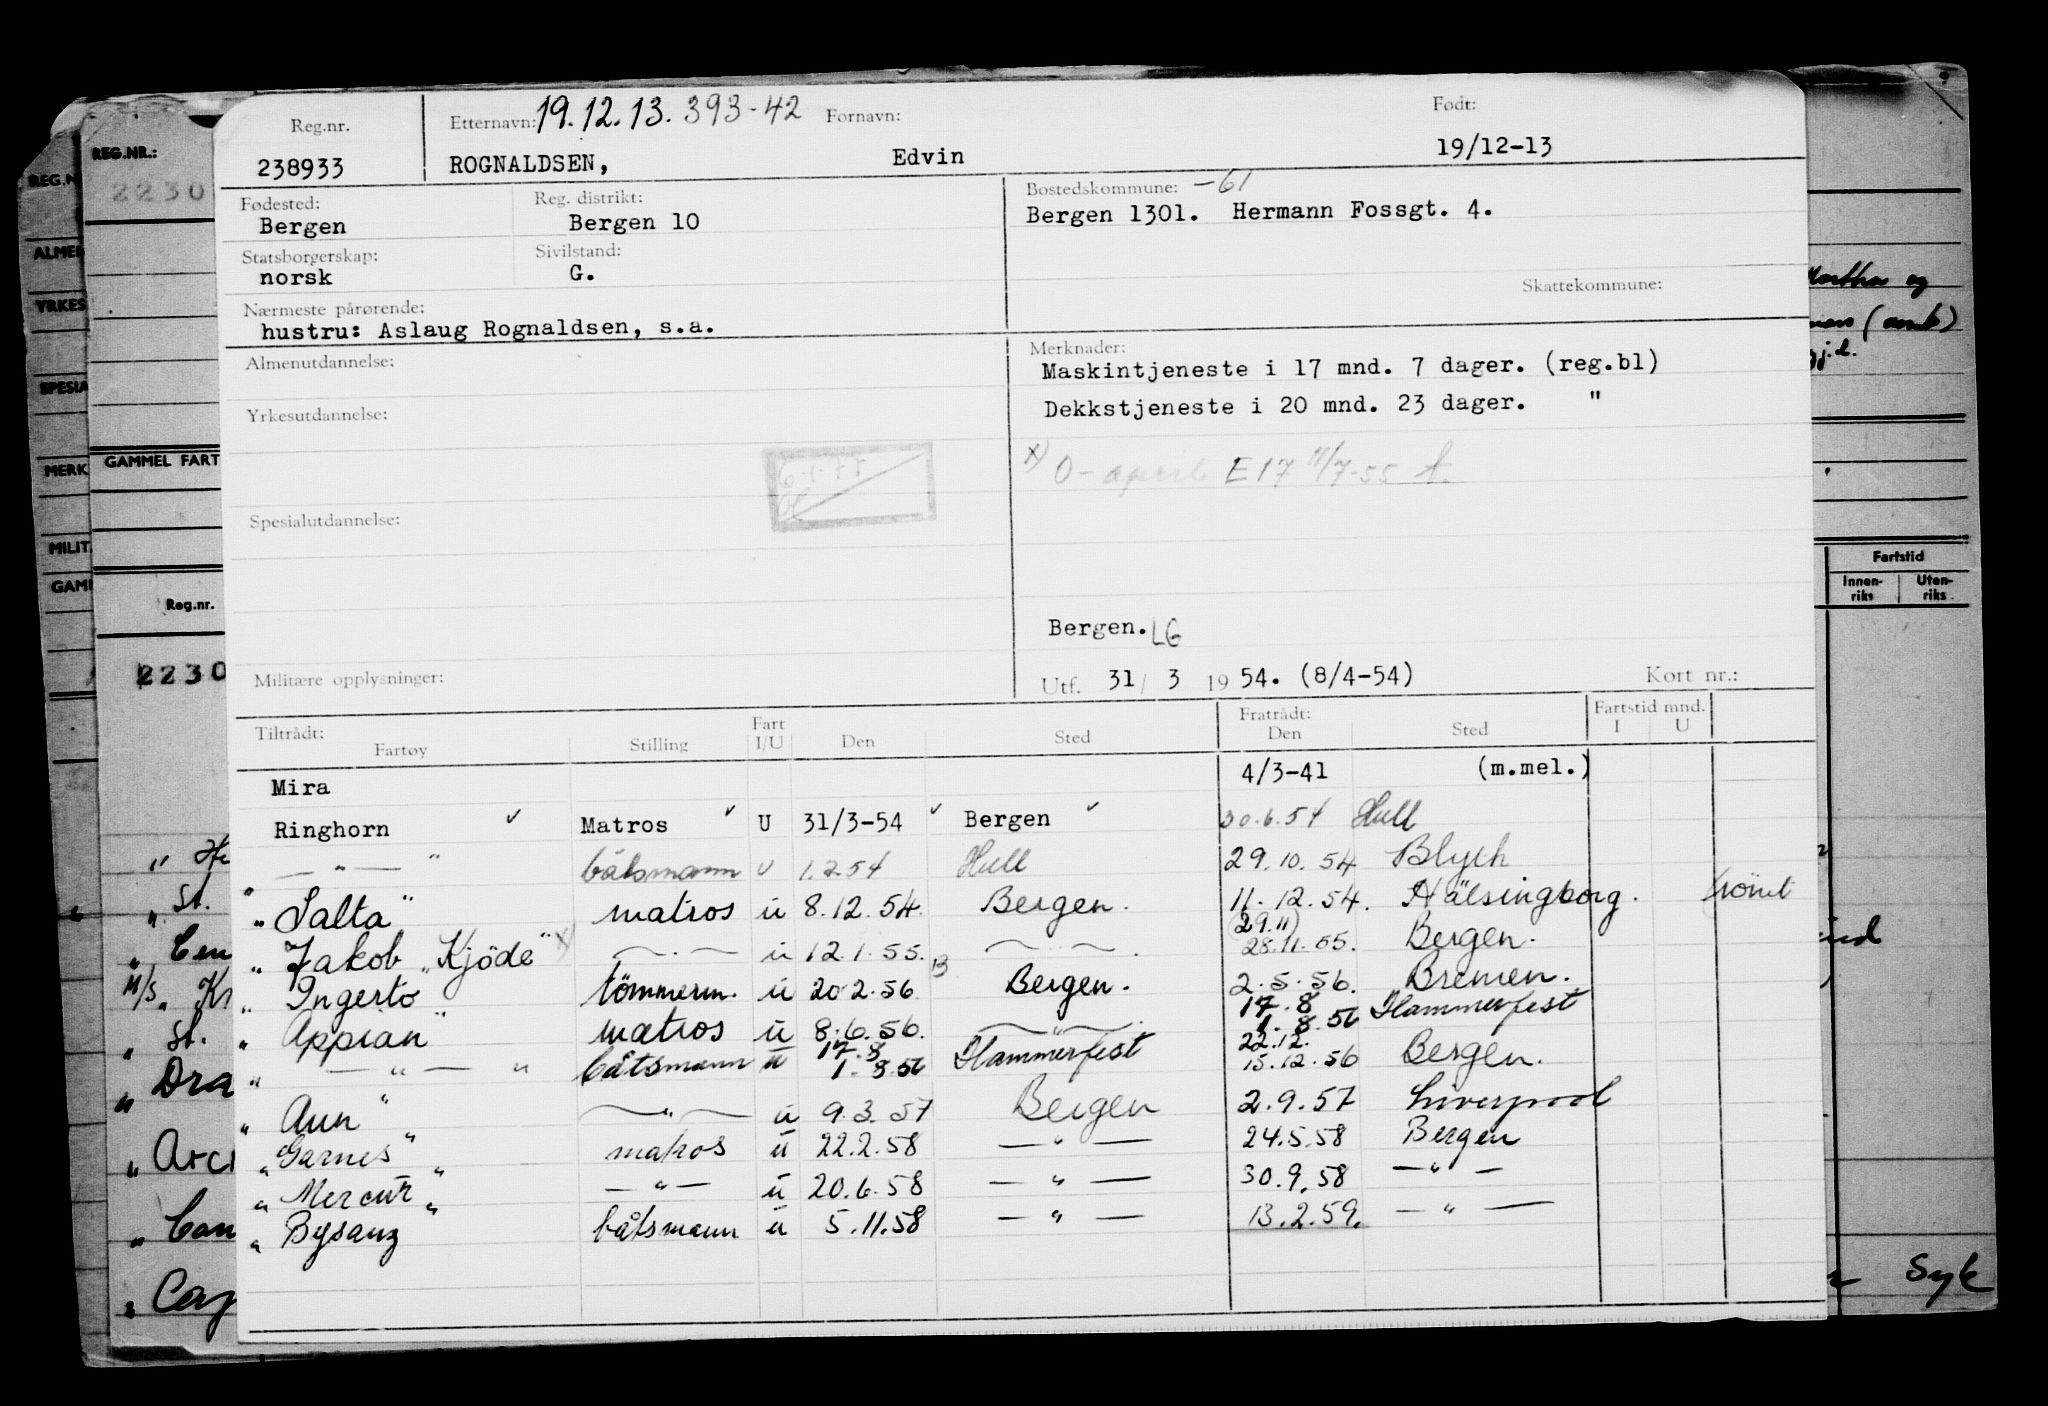 Reg.nr. Etternavn: 19.12.13. 393-42 Fornavn: Født:
238933 ROGNALDSEN, Edvin 19/12-13
Fødested: Reg. distrikt: Bostedskommune: -61
Bergen Bergen 10 Bergen 1301. Hermann Fossgt. 4.
Statsborgerskap: Sivilstand:
norsk G.
Skattekommune:
Nærmeste pårørende:
hustru: Aslaug Rognaldsen, s.a.
Almenutdannelse: Merknader:
Maskintjeneste i 17 mnd. 7 dager. (reg.bl)
Yrkesutdannelse: Dekkstjeneste i 20 mnd. 23 dager. "
x) 0- april E17 /7-55
Spesialutdannelse:
Bergen. LG
Militære opplysninger: Utf. 31/ 3 19 54. (8/4-54) Kort nr.:
Tiltrådt: Fart Fratrådt: Fartstid mnd.
Fartøy Stilling I/U Den Sted Den Sted I U
Mira 4/3-41 (m.mel.)
Ringhorn ✓ Matros ✓ U 31/3-54 ✓ Bergen ✓ 30.6.54 Hull
— " — " båtsmann U 1.2.54 Hull 29.10.54 Blyth
" Salta " matros u 8.12.54. Bergen. 11.12.54. Hälsingborg.
(29.11)
" Jakob "Kjöde" x) — . — u 12.1.55. — . — 28.11.55. Bergen.
" Ingerto tömmerm. u 20.2.56 Bergen. 2.5.56. Bremen.
17.8
" Appian " matros u 8.6.56. — " — 1.8.56 Hammerfest
17.8 22.12.
" — " — " båtsmann u 1.8.56 Hammerfest 15.12.56 Bergen.
" Aun " — " — u 9.3.57 Bergen 2.9.57 Liverpool
" Garnes " matros u 22.2.58 — " — 24.5.58 Bergen
" Mercur " — " — u 20.6.58 — " — 30.9.58 — " —
" Bysanz " båtsmann u 5.11.58 — " — 13.2.59. — " —
REG.NR.:
2230
GAMMEL FART
Reg.nr.
2230
REG.N
ALME
YRKES
SPESIA
MERK
MILIT
GAM
St.
M/S
St.
Dra
Martha og
Fartstid
Innen-riks Uten-riks
Syk